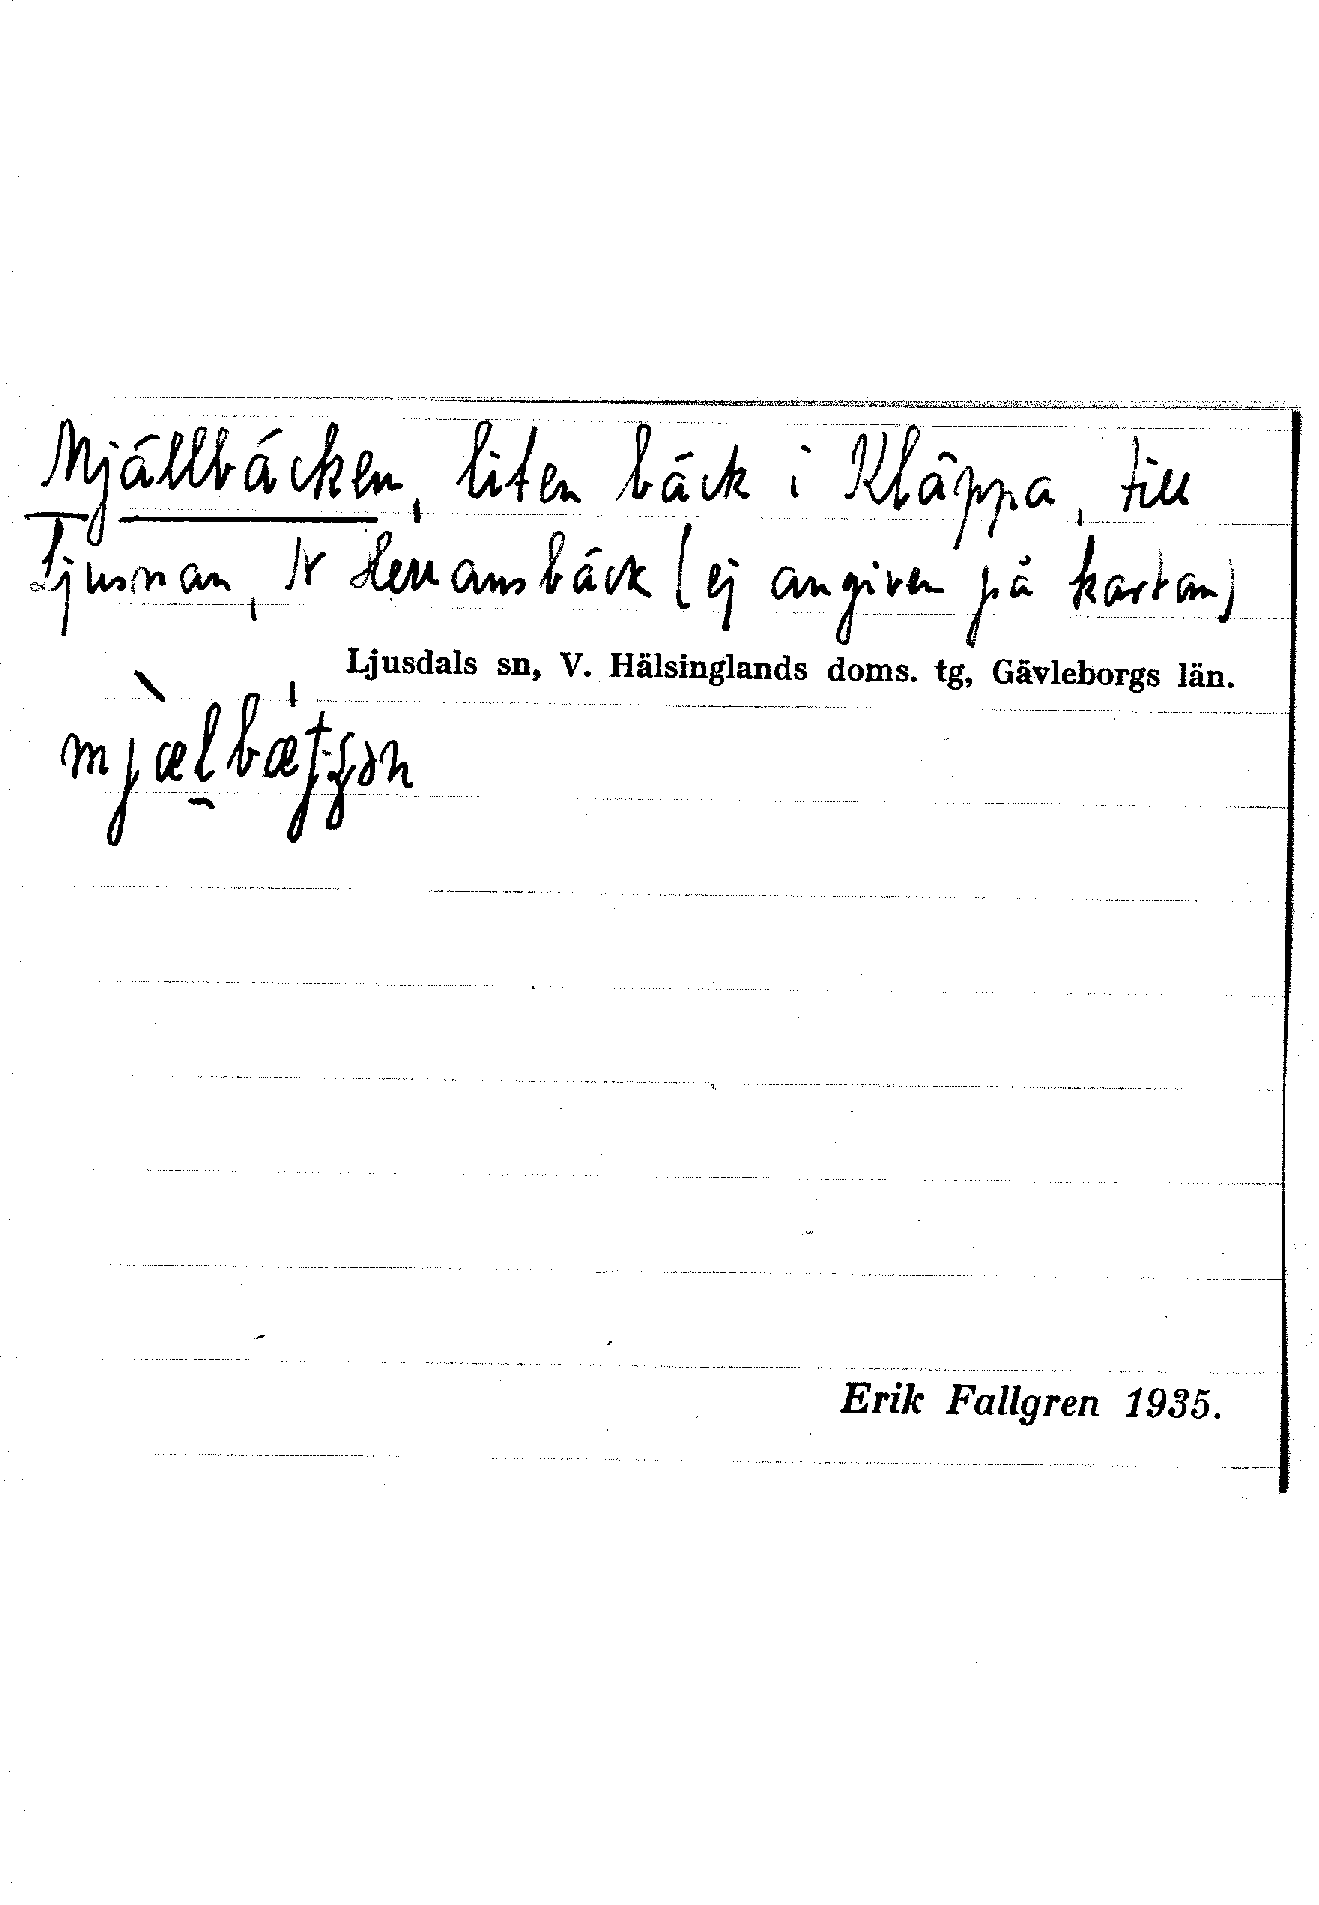 Mjällbäcken, liten bäck i Kläppa, till
Ljusnan, N Hermansbäck (ej angiven på kartan)
Ljusdals sn, V. Hälsinglands doms. tg, Gävleborgs län.
Erik Fallgren 1935.